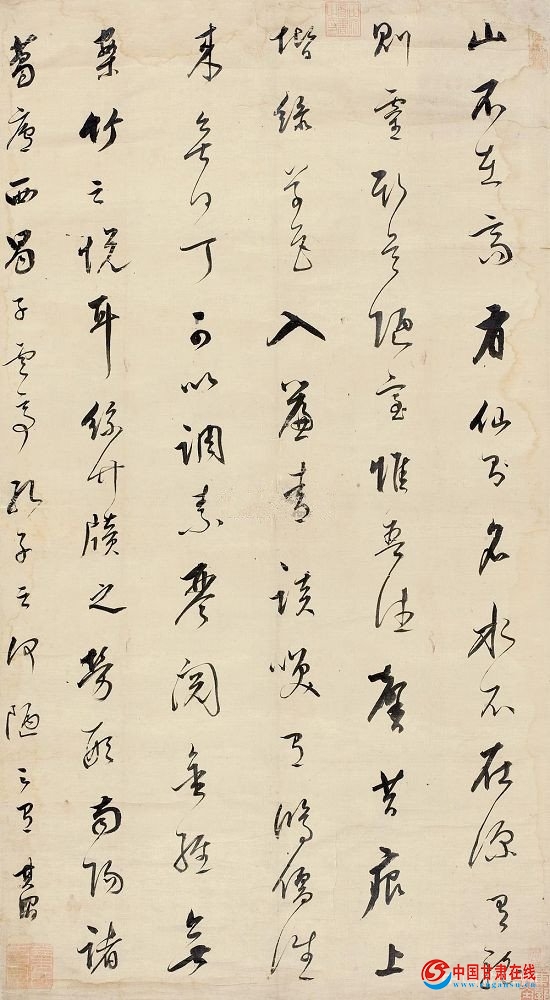 山不在高有仙則名水不在深有龍
則靈斯是陋室惟吾德馨苔痕上
堦綠草色入簾青談笑有鴻儒往
來無白丁可以調素琴閱金經無
竹之悅耳絲竹牘之勞形南陽諸
葛廬西蜀子雲亭孔子云何陋之有 其昌
中国甘肃在线